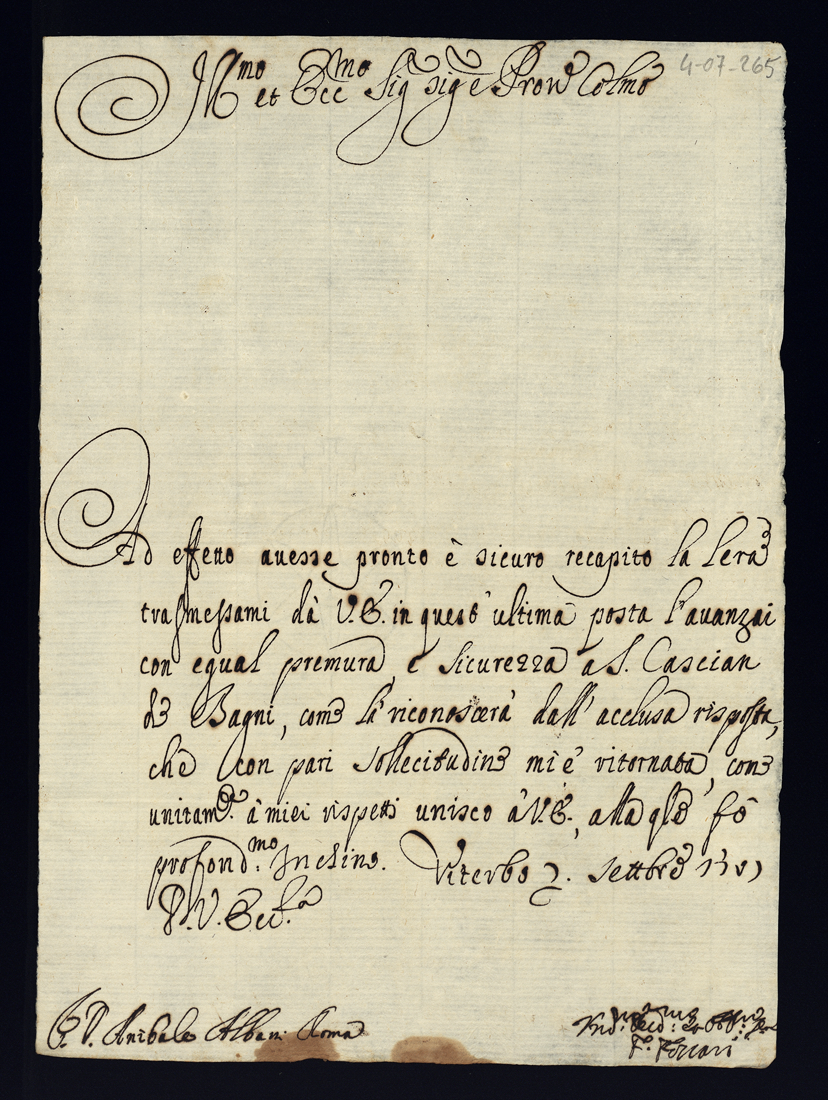 Ill.mo et Ecc.mo Sig.r Sig.r e Pron Colmo
4-07-265
Ad effetto auesse pronto è sicuro recapito la lera
trasmessami dà V.E. in quest' ultima posta l'auanzai
con egual premura, e sicurezza a S. Cascian
de Bagni, come la riconoscerà dall' acclusa risposta,
chè con pari sollecitudine mi è ritornata, come
unitam.te à miei rispetti unisco à V.E., alla qle fò
profond.mo Inchino. Viterbo 7. Settbre
D. V. Ecc.a
D. Anibale Albani Roma
F. Ferrari